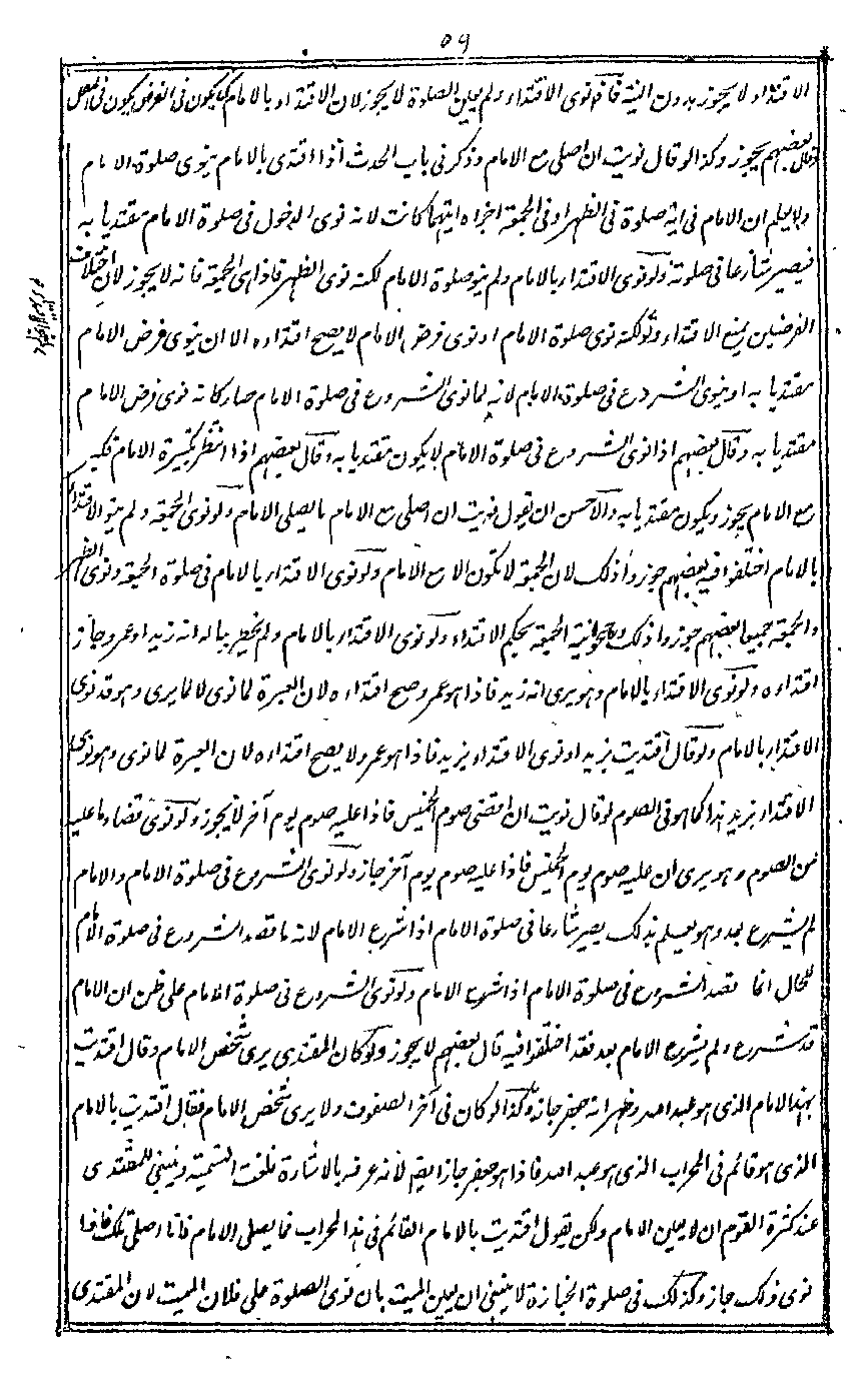 ٥٩
الاقتداء لا يجوز بدون النية فان نوى الاقتداء ولم يعين الصلوة لا يجوز لان الاقتداء بالامام كما يكون فى الفرض يكون فى النفل
وقال بعضهم يجوز وكذا لو قال نويت ان اصلى مع الامام وذكر فى باب الحدث اذا اقتدى بالامام ينوى صلوة الامام
ولا يعلم ان الامام فى اية صلوة فى الظهر او فى الجمعة اجزاه ايتهما كانت لانه نوى الدخول فى صلوة الامام مقتديا به
فيصير شارعا فى صلوته ولو نوى الاقتداء بالامام ولم ينو صلوة الامام لكنه نوى الظهر فاذا هى الجمعة فانه لا يجوز لان اختلاف
الفرضين يمنع الاقتداء ولو لكنه نوى صلوة الامام او نوى فرض الامام لا يصح اقتداءه الا ان ينوى فرض الامام
مقتديا به او ينوى الشروع فى صلوة الامام لانه لما نوى الشروع فى صلوة الامام صار كانه نوى فرض الامام
مقتديا به وقال بعضهم اذا نوى الشروع فى صلوة الامام لا يكون مقتديا به وقال بعضهم اذا انتظر تكبيرة الامام فكبر
مع الامام يجوز ويكون مقتديا به والاحسن ان يقول نويت ان اصلى مع الامام ما يصلى الامام ولو نوى الجمعة ولم ينو الاقتداء
بالامام اختلفوا فيه بعضهم جوزوا ذلك لان الجمعة لا تكون الا مع الامام ولو نوى الاقتداء بالامام فى صلوة الجمعة ونوى الظهر
والجمعة جميعا بعضهم جوزوا ذلك نية الجمعة بحكم الاقتداء ولو نوى الاقتداء بالامام ولم يخطر بباله انه زيد او عمرو جاز
اقتداءه ولو نوى الاقتداء بالامام وهو يرى انه زيد فاذا هو عمرو صح اقتداءه لان العبرة لما نوى لا لما يرى وهو قد نوى
الاقتداء بالامام ولو قال اقتديت بزيد او نوى الاقتداء بزيد فاذا هو عمرو لا يصح اقتداءه لان العبرة لما نوى وهو نوى
الاقتداء بزيد هذا كما هو فى الصوم لو قال نويت ان اقضى صوم الخميس فاذا عليه صوم يوم آخر لا يجوز ولو نوى قضاء ما عليه
من الصوم وهو يرى ان عليه صوم يوم الخميس فاذا عليه صوم يوم آخر جاز ولو نوى الشروع فى صلوة الامام والامام
لم يشرع بعد وهو يعلم بذلك يصير شارعا فى صلوة الامام اذا شرع الامام لانه ما قصد الشروع فى صلوة الامام
للحال انما قصد الشروع فى صلوة الامام اذا شرع الامام ولو نوى الشروع فى صلوة الامام على ظن ان الامام
قد شرع ولم يشرع الامام بعد فقد اختلفوا فيه قال بعضهم لا يجوز ولو كان المقتدى يرى شخص الامام وقال اقتديت
بهذا الامام الذى هو عبد الله وظهر انه جعفر جاز وكذا لو كان فى آخر الصفوف ولا يرى شخص الامام فقال اقتديت بالامام
الذى هو قائم فى المحراب الذى هو عبد الله فاذا هو جعفر جاز ايضا لانه عرفه بالاشارة فلغت التسمية وينبغى للمقتدى
عند كثرة القوم ان لا يعين الامام ولكن يقول اقتديت بالامام القائم فى هذا المحراب فما يصلى الامام فانا اصلى تلك فاذا
نوى ذلك جاز وكذلك فى صلوة الجنازة لا ينبغى ان يعين الميت بان نوى الصلوة على فلان الميت لان المقتدى